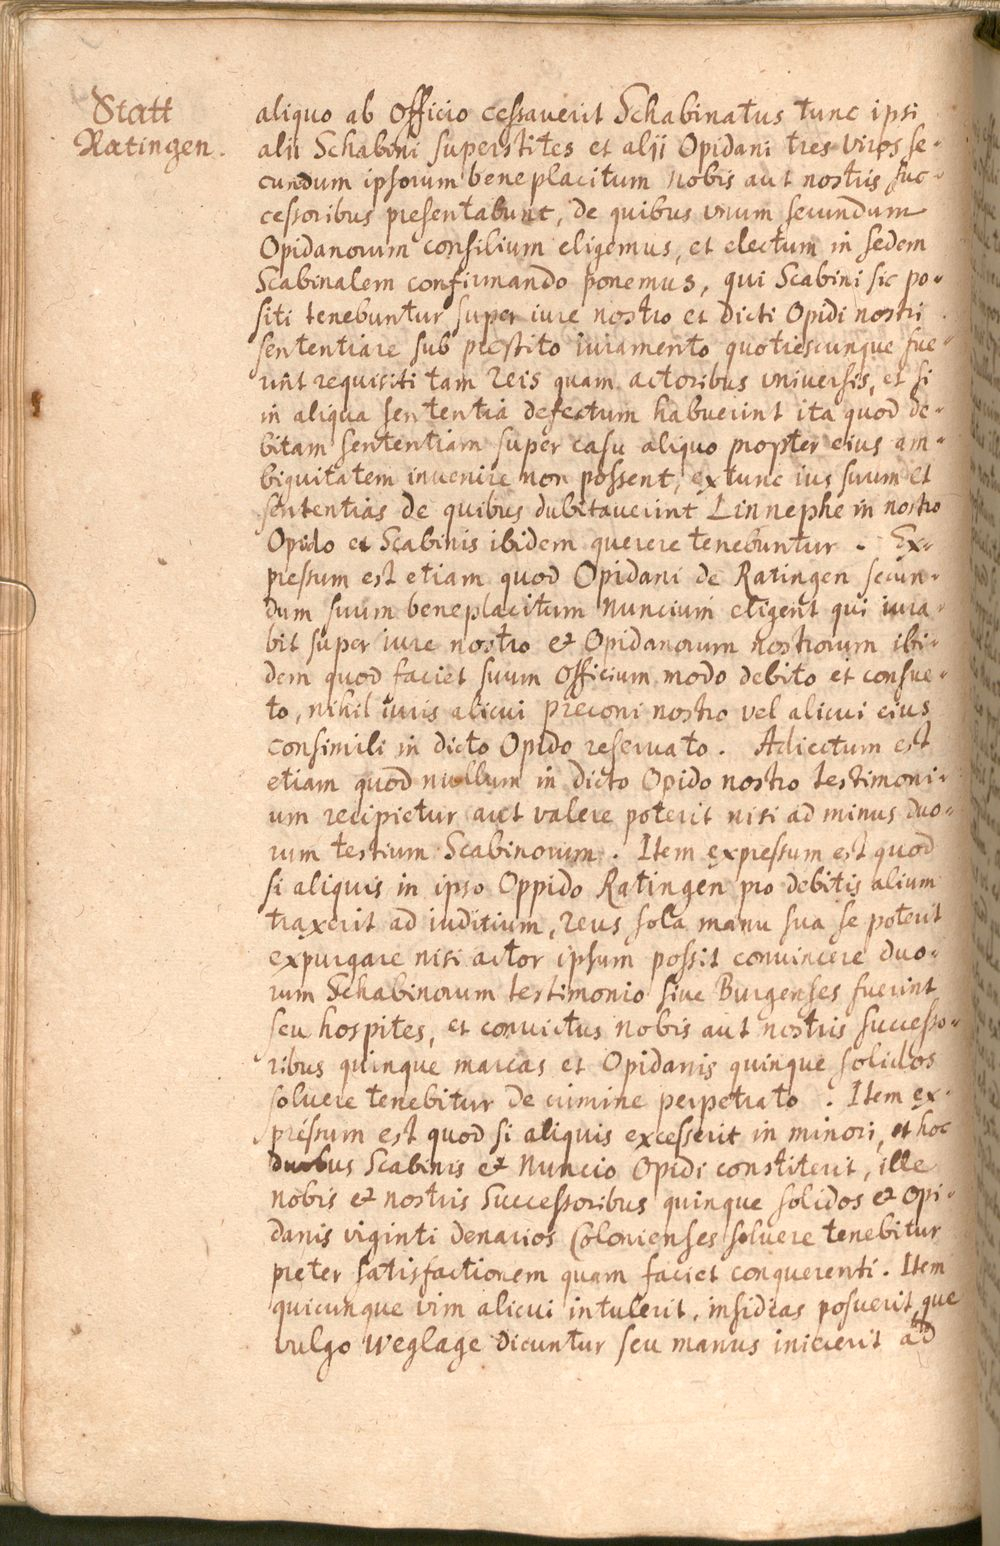 Statt
Ratingen.
aliquo ab officio cessaverit Schabinatus tunc ipsi
alii Schabini superstites et alii Opidani tres viros se-
cundum ipsorum beneplacitum nobis aut nostris suc-
cessoribus presentabunt, de quibus vnum secundum
Opidanorum consilium eligemus, et electum in sedem
Scabinalem confirmando ponemus, qui Scabini sic po-
siti tenebuntur super iure nostro et dicti Opidi nostri
sententiare sub prestito iuramento quotiescunque fue-
rint requisiti tam reis quam actoribus vniversis, et si
in aliqua sententia defectum habuerint ita quod de-
bitam sententiam super casu aliquo propter eius am-
biguitatem invenire non possent, extunc ius suum et
sententias de quibus dubitauerint Linnephe in nostro
Opido et Scabinis ibidem querere tenebuntur. Ex-
pressum est etiam quod Opidani de Ratingen secun-
dum suum beneplacitum nuncium eligent qui iura-
bit super iure nostro et Opidanorum nostrorum ibi-
dem quod faciet suum officium modo debito et consue-
to, nihil iuris alicui preconi nostro vel alicui eius
consimili in dicto Opido reseruato. Adiectum est
etiam quod nullum in dicto Opido nostro testimoni-
um recipietur aut valere poterit nisi ad minus duo-
rum testium Scabinorum. Item expressum est quod
si aliquis in ipso Oppido Ratingen pro debitis alium
traxerit ad iuditium, reus sola manu sua se poterit
expurgare nisi actor ipsum possit convincere duo-
rum Schabinorum testimonio siue Burgenses fuerint
seu hospites, et convictus nobis aut nostris successo-
ribus quinque marcas et Opidanis quinque solidos
soluere tenebitur de crimine perpetrato. Item ex-
pressum est quod si aliquis excesserit in minori, et hoc
duobus Scabinis et Nuncio Opidi constiterit, ille
nobis et nostris Successoribus quinque solidos et opi-
danis viginti denarios Colonienses soluere tenebitur
preter satisfactionem quam faciet conquerenti. Item
quicunque vim alicui intulerit, insidias posuerit, que
vulgo Weglage dicuntur seu manus iniecerit ad